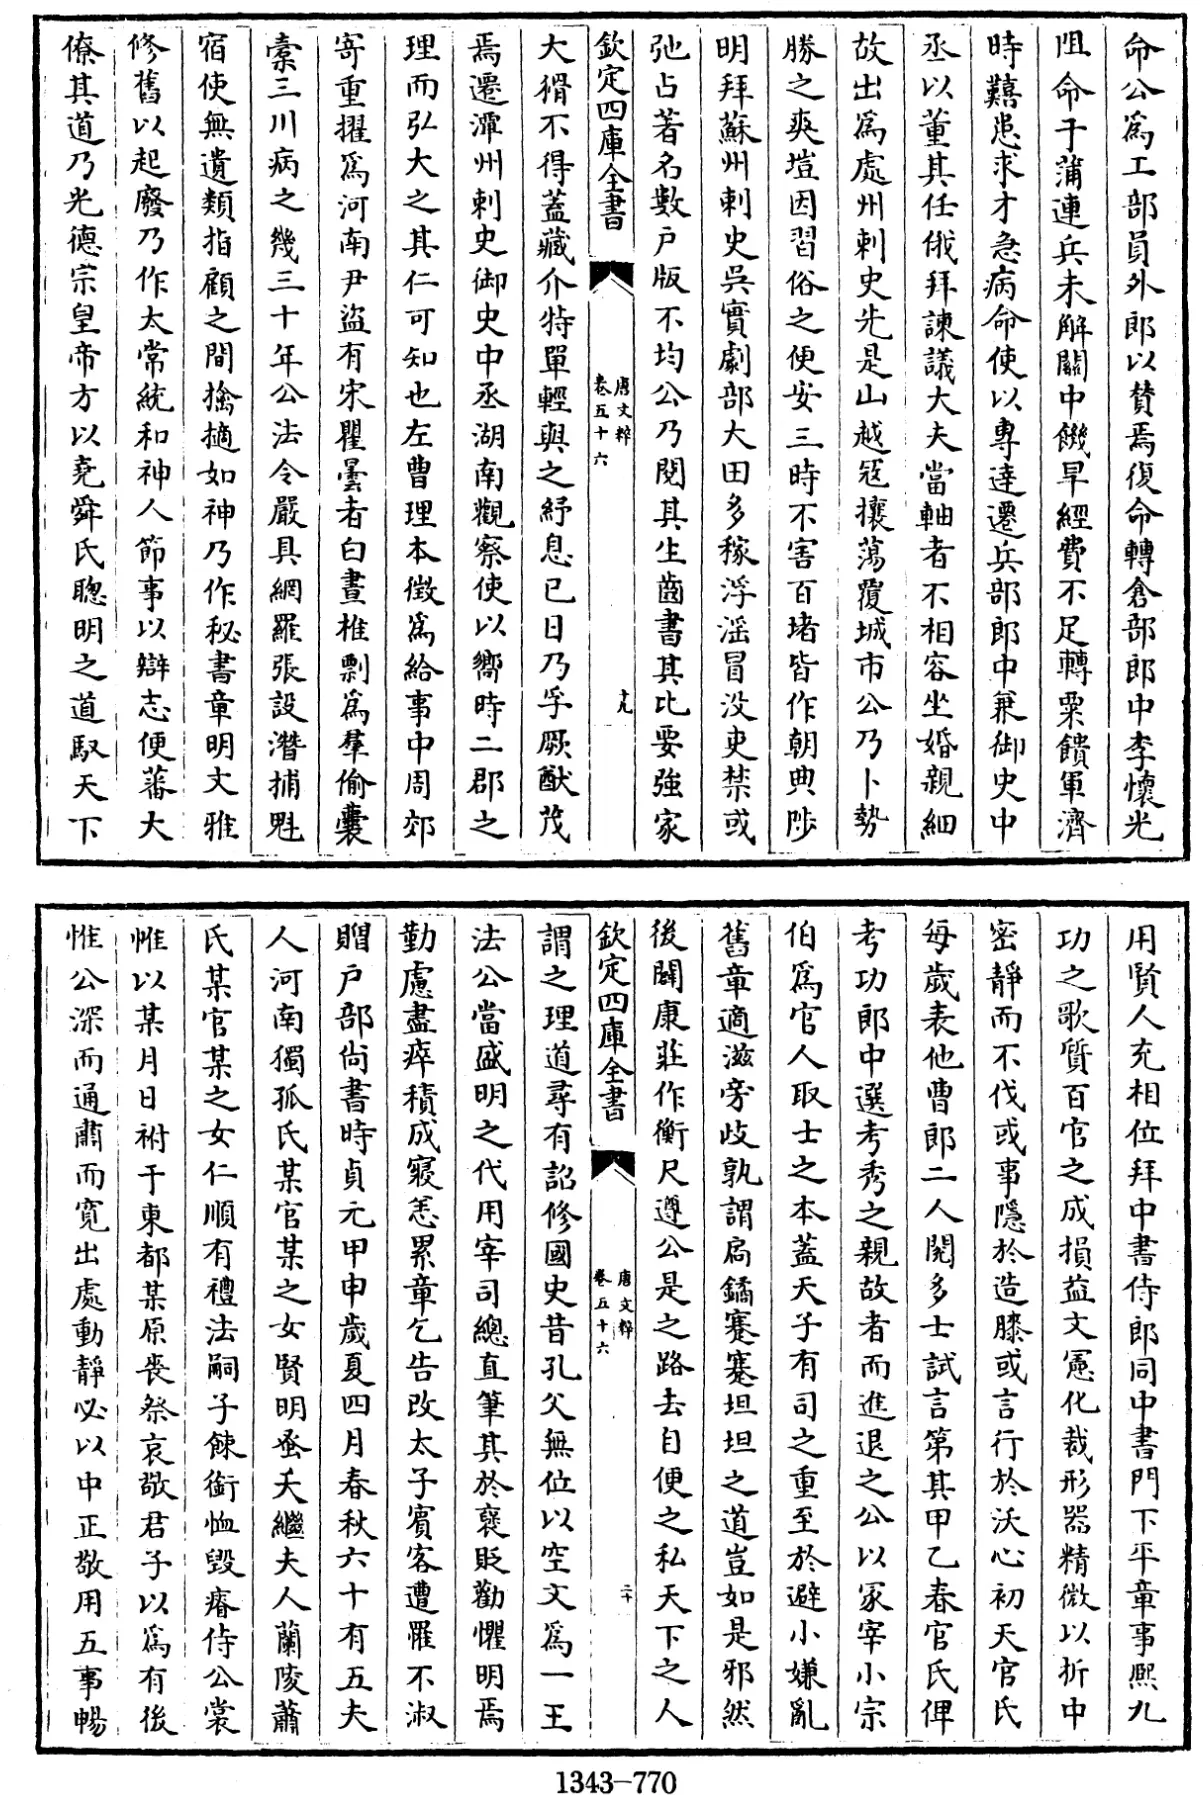 命公爲工部員外郎以賛焉復命轉倉部郎中李懷光
阻命于蒲連兵未解關中饑旱經費不足轉粟饋軍濟
時囏患求才急病命使以專達遷兵部郎中兼御史中
丞以董其任俄拜諫議大夫當軸者不相容坐婚親細
故出爲處州刺史先是山越宼攘蕩覆城市公乃卜勢
勝之爽塏因習俗之便安三時不害百堵皆作朝典陟
明拜蘇州刺史吳實劇部大田多稼浮滛冒没吏禁或
弛占著名數戸版不均公乃閱其生齒書其比要強家
欽定四庫全書
唐文粹
卷五十六
十九
大猾不得蓋藏介特單輕與之紓息已日乃孚厥猷茂
焉遷潭州刺史御史中丞湖南觀察使以嚮時二郡之
理而弘大之其仁可知也左曹理本徵爲給事中周郊
寄重擢爲河南尹盜有宋瞿曇者白晝椎剽爲羣偷囊
橐三川病之幾三十年公法令嚴具網羅張設潛捕魁
宿使無遺類指顧之間擒擿如神乃作秘書章明文雅
修舊以起廢乃作太常統和神人節事以辯志便蕃大
僚其道乃光德宗皇帝方以堯舜氏聰明之道馭天下
用賢人充相位拜中書侍郎同中書門下平章事熈九
功之歌質百官之成損益文憲化裁形器精微以折中
密靜而不伐或事隱於造膝或言行於沃心初天官氏
每歲表他曹郎二人閱多士試言第其甲乙春官氏俾
考功郎中選考秀之親故者而進退之公以冢宰小宗
伯爲官人取士之本蓋天子有司之重至於避小嫌亂
舊章適滋旁歧孰謂扃鐍蹇蹇坦坦之道豈如是邪然
後闢康莊作衡尺遵公是之路去自便之私天下之人
欽定四庫全書
唐文粹
卷五十六
二十
謂之理道尋有詔修國史昔孔父無位以空文爲一王
法公當盛明之代用宰司總直筆其於襃貶勸懼明焉
勤慮盡瘁積成寢恙累章乞告改太子賓客遭罹不淑
贈戸部尚書時貞元甲申歲夏四月春秋六十有五夫
人河南獨孤氏某官某之女賢明蚤夭繼夫人蘭陵蕭
氏某官某之女仁順有禮法嗣子餗銜恤毀瘠侍公裳
帷以某月日祔于東都某原喪祭哀敬君子以爲有後
惟公深而通肅而寛出處動靜必以中正敬用五事暢
1343-770